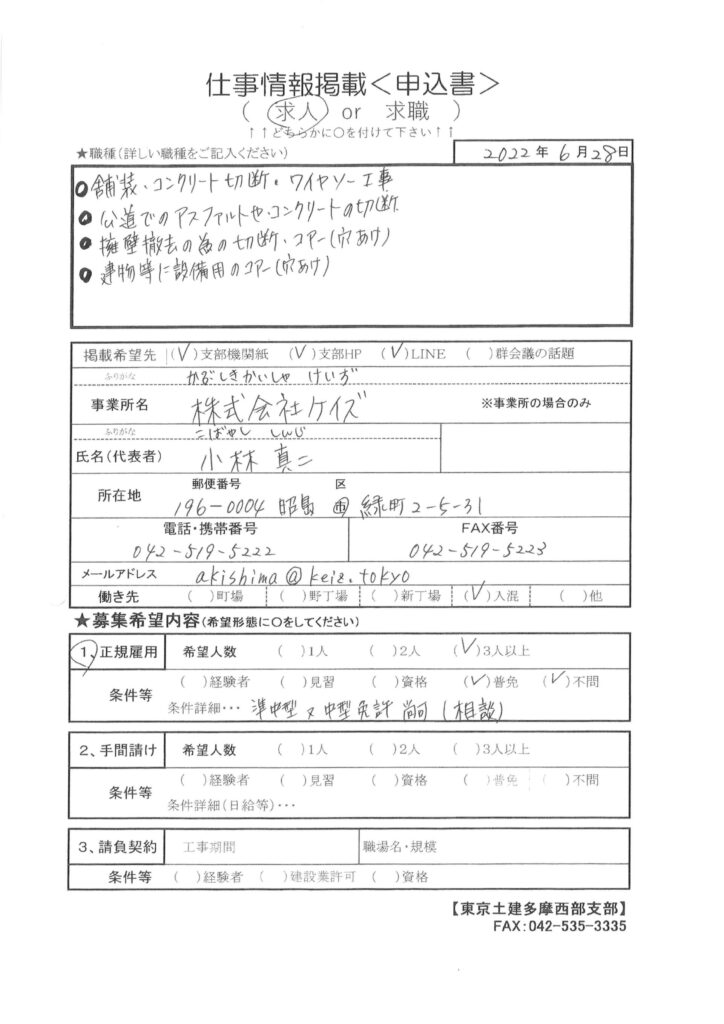 仕事情報掲載＜申込書＞
（ 求人 or 求職 ）
↑↑どちらかに○を付けて下さい↑↑
★職種(詳しい職種をご記入ください)
2022年 6月28日
●舗装・コンクリート切断・ワイヤソー工事
●公道でのアスファルトや・コンクリートの切断
●擁壁撤去の為の切断・コアー(穴あけ)
●建物等に設備用のコアー(穴あけ)
掲載希望先 (✓)支部機関紙 (✓)支部HP (✓)LINE ( )群会議の話題
ふりがな かぶしきかいしゃ けいず
事業所名 株式会社ケイズ ※事業所の場合のみ
ふりがな こばやし しんじ
氏名(代表者) 小林 真二
郵便番号 区
所在地 196-0004 昭島 市 緑町2-5-31
電話・携帯番号 FAX番号
042-519-5222 042-519-5223
メールアドレス akishima@keiz.tokyo
働き先 ( )町場 ( )野丁場 ( )新丁場 (✓)人混 ( )他
★募集希望内容(希望形態に○をしてください)
1、正規雇用 希望人数 ( )1人 ( )2人 (✓)3人以上
条件等 ( )経験者 ( )見習 ( )資格 (✓)普免 (✓)不問
条件詳細・・・ 準中型又中型免許尚可(相談)
2、手間請け 希望人数 ( )1人 ( )2人 ( )3人以上
条件等 ( )経験者 ( )見習 ( )資格 ( )普免 ( )不問
条件詳細(日給等)・・・
3、請負契約 工事期間 職場名・規模
条件等 ( )経験者 ( )建設業許可 ( )資格
【東京土建多摩西部支部】
FAX:042-535-3335